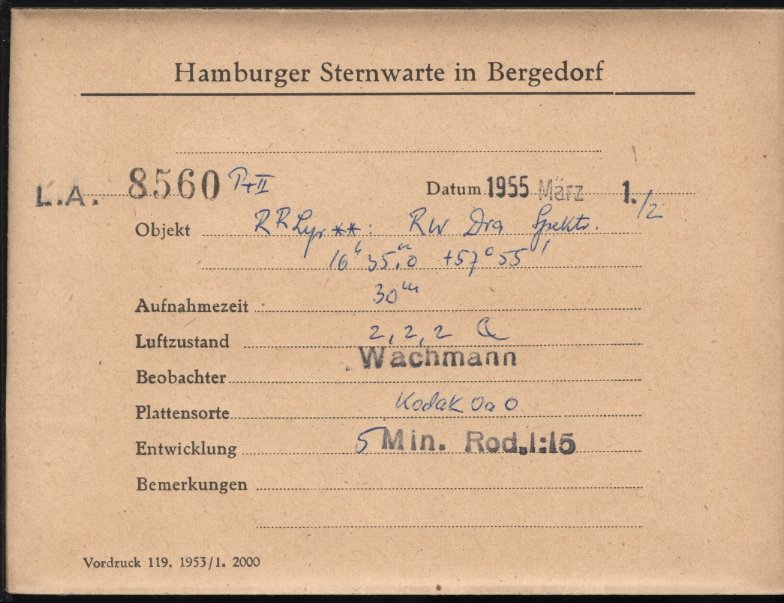 Hamburger Sternwarte in Bergedorf
L.A. 8560 P+II Datum 1955 März 1./2
Objekt RR Lyr **: RW Dra Spektr.
16ʰ 35ᵐ.0 +57° 55'
Aufnahmezeit 30ᵐ
Luftzustand 2, 2, 2 Q
Beobachter Wachmann
Plattensorte Kodak OaO
Entwicklung 5 Min. Rod.1:15
Bemerkungen
Vordruck 119. 1953/1. 2000